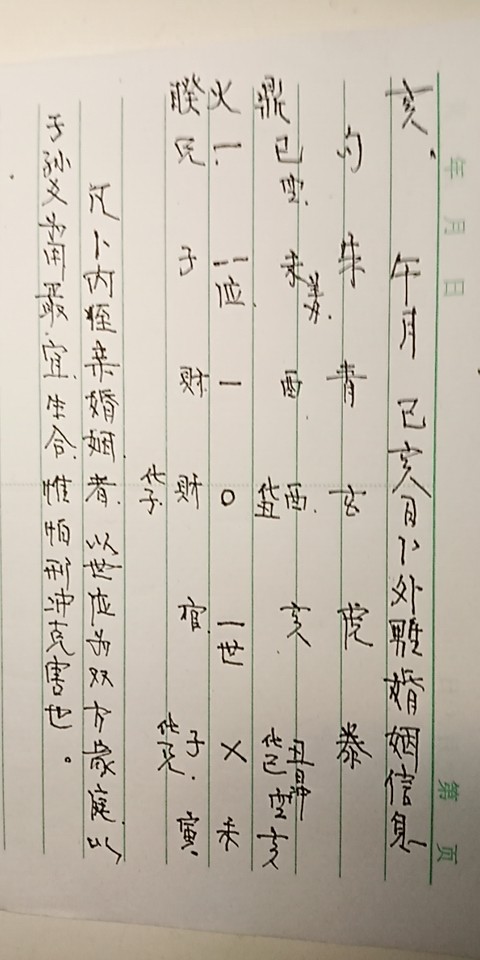 年 月 日 第 页
亥、 午月 己亥日卜外甥婚姻信息
勾 朱 青 玄 虎
鼎 巳空 未 酉 酉化丑 亥 丑 化巳空亥
火 一 一一位 一 〇 一世 × 未
睽 兄 子 财 财化子 官 子化兄 寅
凡卜内侄亲婚姻者,以世位为双方家庭,以
子孙爻为用最宜生合,惟怕刑冲克害也。